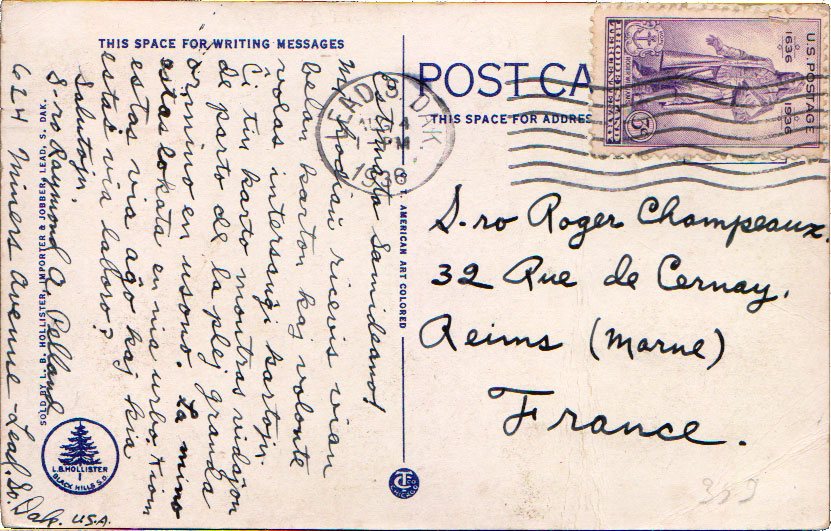 THIS SPACE FOR WRITING MESSAGES
Estimata Samideano!
Mi hodiaŭ ricevis vian
belan karton kaj volonte
volas interŝanĝi kartojn.
Ĉi tiu karto montras vidaĵon
de parto de la plej granda
ormino en usono. La mino
estas lokata en nia urbo. Kiom
estas via aĝo kaj kia
estas via laboro?
Salutojn,
S-ro Raymond A. Pelland
624 Miners Avenue - Lead, So. Dak. U.S.A.
SOLD BY L. B. HOLLISTER, IMPORTER & JOBBER, LEAD, S. DAK.
L.B. HOLLISTER
BLACK HILLS S.D.
AMERICAN ART COLORED
CHICAGO
POST CA
THIS SPACE FOR ADDRES
LEAD DAK.
14
U.S. POSTAGE
1636 1936
3¢
S-ro Roger Champeaux.
32 Rue de Cernay.
Reims (Marne)
France.